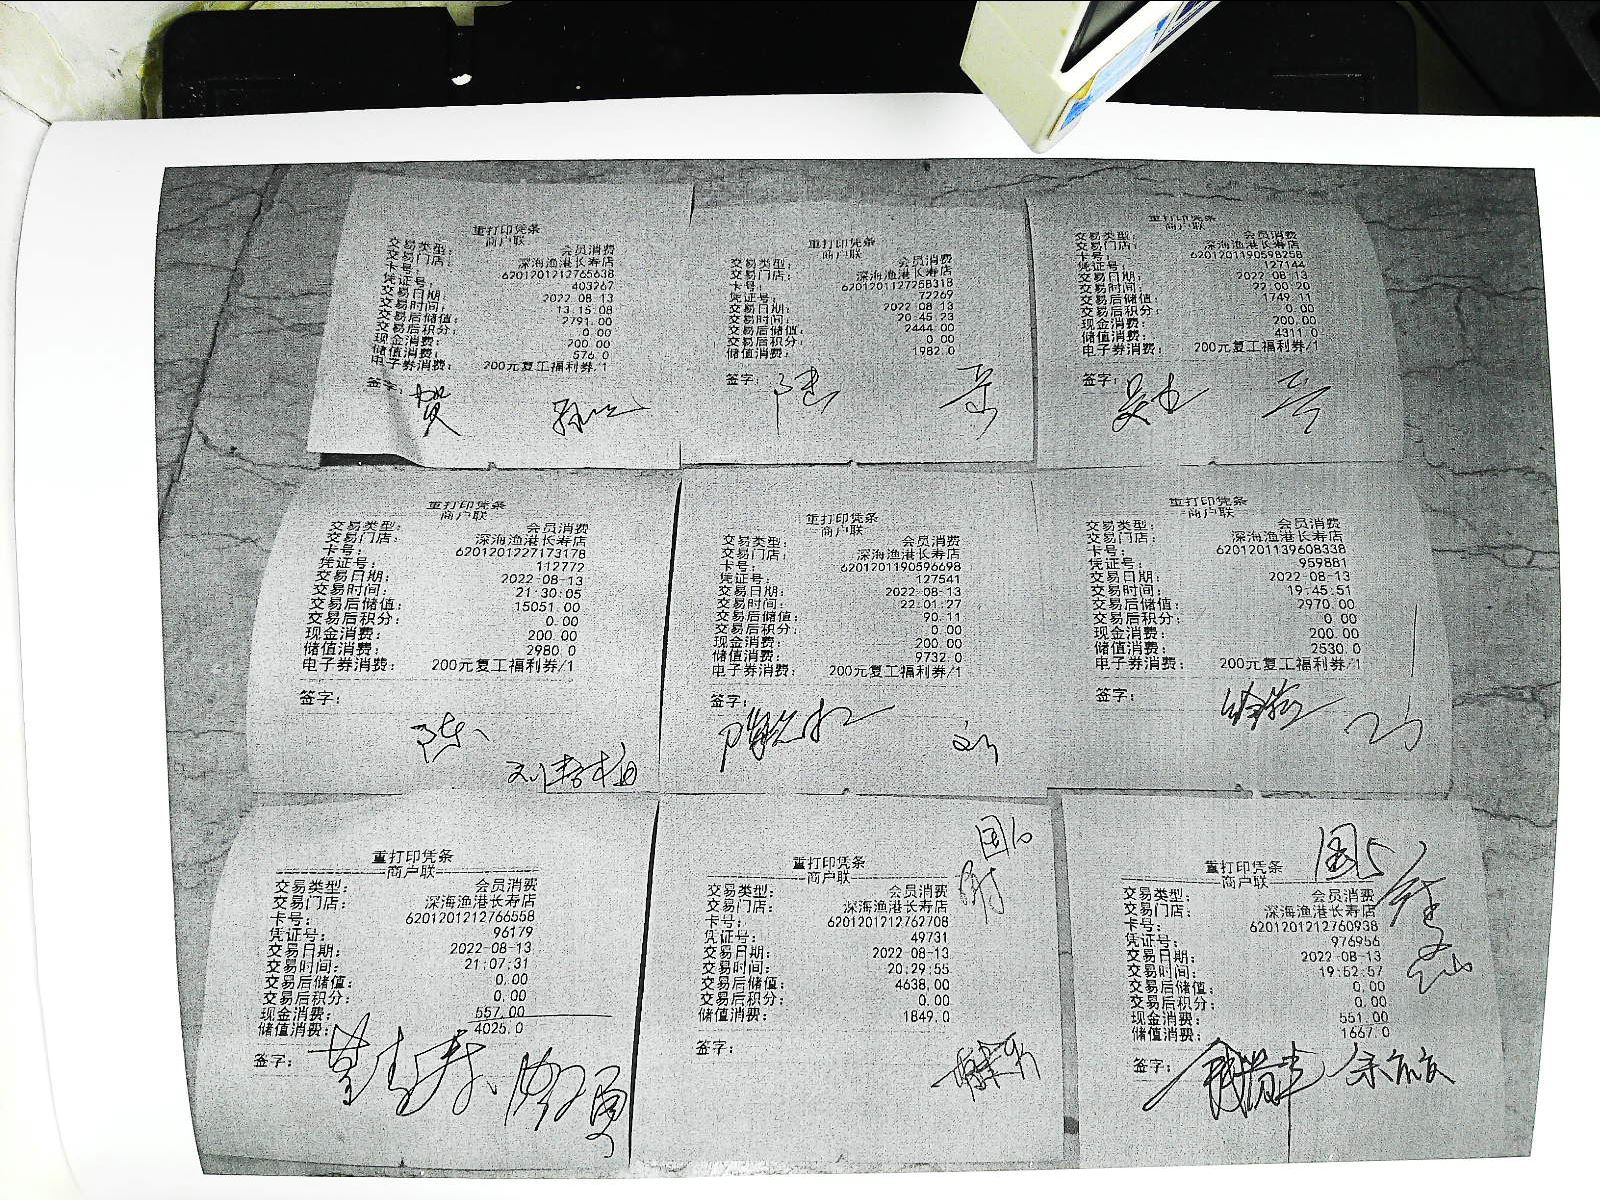 重打印凭条
商户联
交易类型： 会员消费
交易门店： 深海渔港长寿店
卡号： 6201201212765638
凭证号： 403267
交易日期： 2022-08-13
交易时间： 13:15:08
交易后储值： 2791.00
交易后积分： 0.00
现金消费： 200.00
储值消费： 576.0
电子券消费： 200元复工福利券/1
签字： 贺
重打印凭条
商户联
交易类型： 会员消费
交易门店： 深海渔港长寿店
卡号： 6201201127258318
凭证号： 72269
交易日期： 2022-08-13
交易时间： 20:45:23
交易后储值： 2444.00
交易后积分： 0.00
储值消费： 1982.0
签字： 陆
重打印凭条
商户联
交易类型： 会员消费
交易门店： 深海渔港长寿店
卡号： 6201201190598258
凭证号： 127144
交易日期： 2022-08-13
交易时间： 22:00:20
交易后储值： 1749.11
交易后积分： 0.00
现金消费： 200.00
储值消费： 4311.0
电子券消费： 200元复工福利券/1
签字：
重打印凭条
商户联
交易类型： 会员消费
交易门店： 深海渔港长寿店
卡号： 6201201227173178
凭证号： 112772
交易日期： 2022-08-13
交易时间： 21:30:05
交易后储值： 15051.00
交易后积分： 0.00
现金消费： 200.00
储值消费： 2980.0
电子券消费： 200元复工福利券/1
签字：
陈
重打印凭条
商户联
交易类型： 会员消费
交易门店： 深海渔港长寿店
卡号： 6201201190596698
凭证号： 127541
交易日期： 2022-08-13
交易时间： 22:01:27
交易后储值： 90.11
交易后积分： 0.00
现金消费： 200.00
储值消费： 9732.0
电子券消费： 200元复工福利券/1
签字：
刘
重打印凭条
商户联
交易类型： 会员消费
交易门店： 深海渔港长寿店
卡号： 6201201139608338
凭证号： 959881
交易日期： 2022-08-13
交易时间： 19:45:51
交易后储值： 2970.00
交易后积分： 0.00
现金消费： 200.00
储值消费： 2530.0
电子券消费： 200元复工福利券/1
签字：
重打印凭条
商户联
交易类型： 会员消费
交易门店： 深海渔港长寿店
卡号： 6201201212766558
凭证号： 96179
交易日期： 2022-08-13
交易时间： 21:07:31
交易后储值： 0.00
交易后积分： 0.00
现金消费： 557.00
储值消费： 4025.0
签字：
国6
重打印凭条
商户联
交易类型： 会员消费
交易门店： 深海渔港长寿店
卡号： 6201201212762708
凭证号： 49731
交易日期： 2022-08-13
交易时间： 20:29:55
交易后储值： 4638.00
交易后积分： 0.00
储值消费： 1849.0
签字：
国5
重打印凭条
商户联
交易类型： 会员消费
交易门店： 深海渔港长寿店
卡号： 6201201212760938
凭证号： 976956
交易日期： 2022-08-13
交易时间： 19:52:57
交易后储值： 0.00
交易后积分： 0.00
现金消费： 551.00
储值消费： 1667.0
签字：